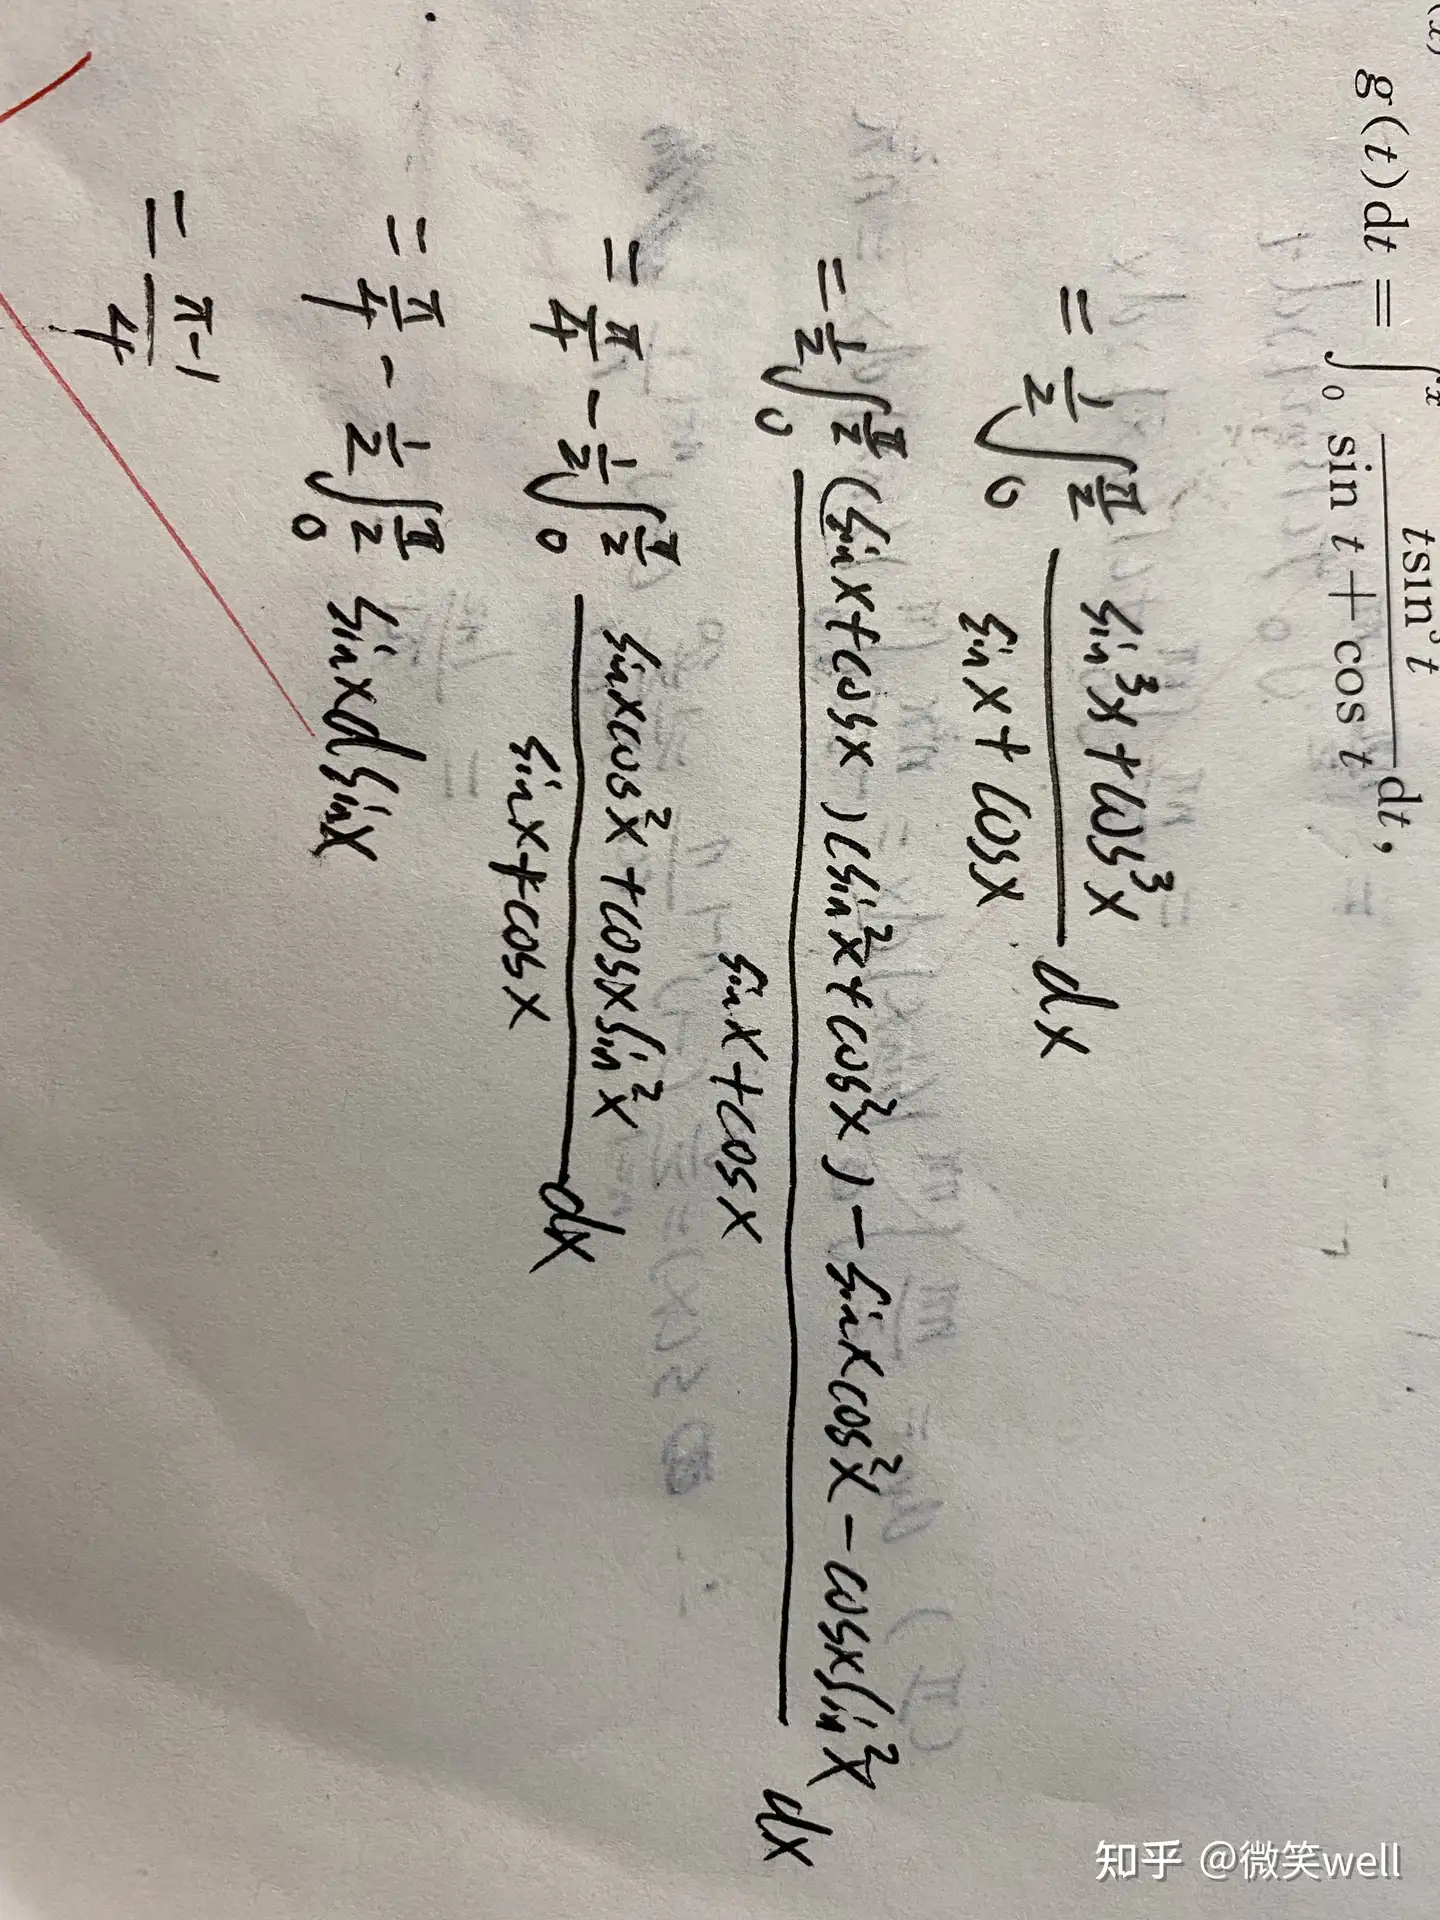 g(t)dt = ∫₀ˣ tsin³t / (sin t + cos t) dt,
= 1/2 ∫₀^(π/2) (sin³x + cos³x) / (sinx + cosx) dx
= 1/2 ∫₀^(π/2) [(sinx + cosx)(sin²x + cos²x) - sinxcos²x - cosxsin²x] / (sinx + cosx) dx
= π/4 - 1/2 ∫₀^(π/2) (sinxcos²x + cosxsin²x) / (sinx + cosx) dx
= π/4 - 1/2 ∫₀^(π/2) sinxdsinx
= (π-1)/4
知乎 @微笑well